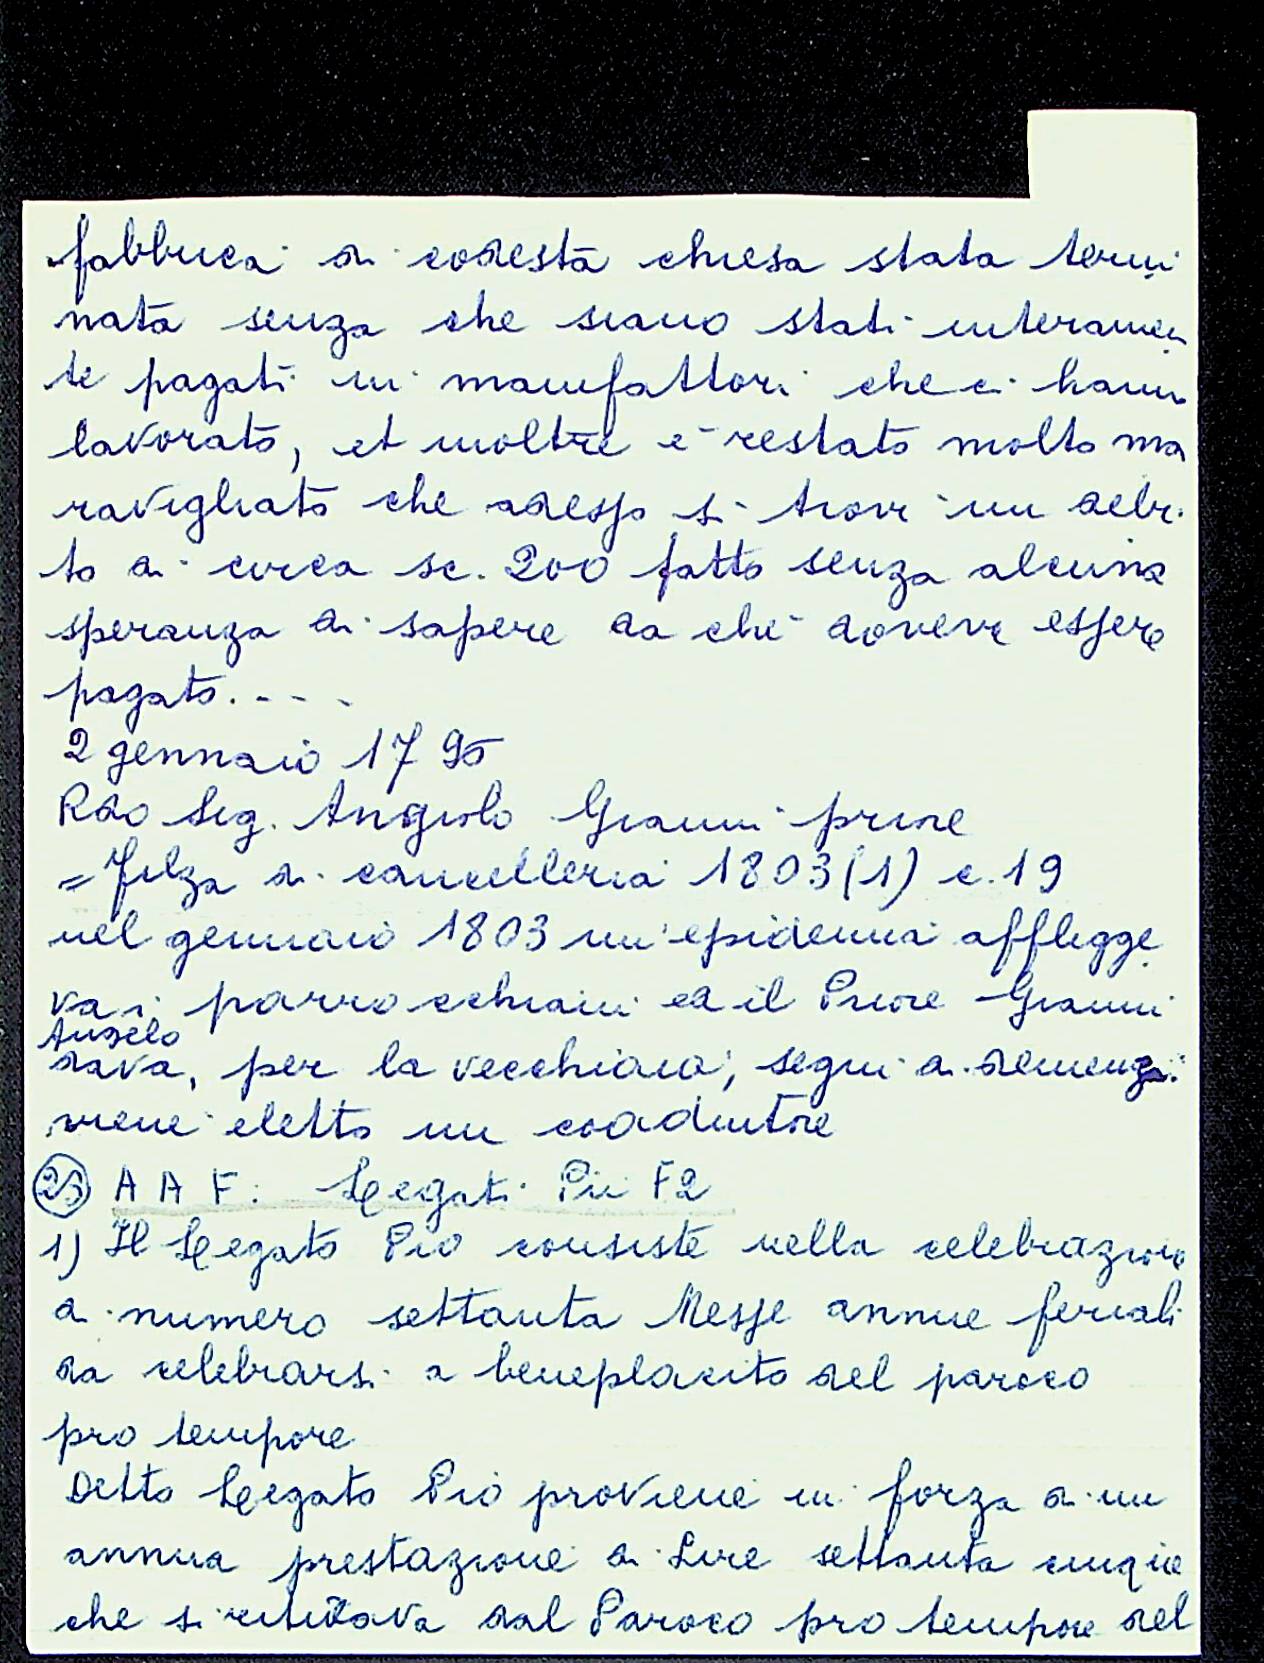 fabbrica di codesta chiesa stata termi
nata senza che siano stati interamen
te pagati i manifattori che ci hann
lavorato, et inoltre è restato molto ma
ravigliato che adesso si trovi un debi
to di circa sc. 200 fatto senza alcuna
speranza di sapere da chi doveve essere
pagato. - - -
2 gennaio 1795
Rdo Sig. Angiolo Gianni priore
= Filza di cancelleria 1803 (1) c. 19
nel gennaio 1803 un'epidemia affligge
va i parrocchiani ed il Priore Gianni
Angelo
dava, per la vecchiaia, segni di demenza:
viene eletto un coadiutore
(23) A A F: Legati Pii F2
1) Il Legato Pio consiste nella celebrazione
di numero settanta Messe annue feriali
da celebrarsi a beneplacito del paroco
pro tempore
Detto Legato Pio proviene in forza di un
annua prestazione di Lire settanta cinque
che si ritirava dal Paroco pro tempore del